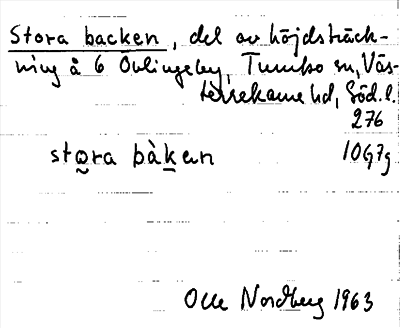 Stora backen, del av höjdsträck-
ning å 6 Övlingeby, Tumbo sn, Väs-
terrekarne hd, Söd.l.
276
stora bàken 10G7g
Olle Nordberg 1963